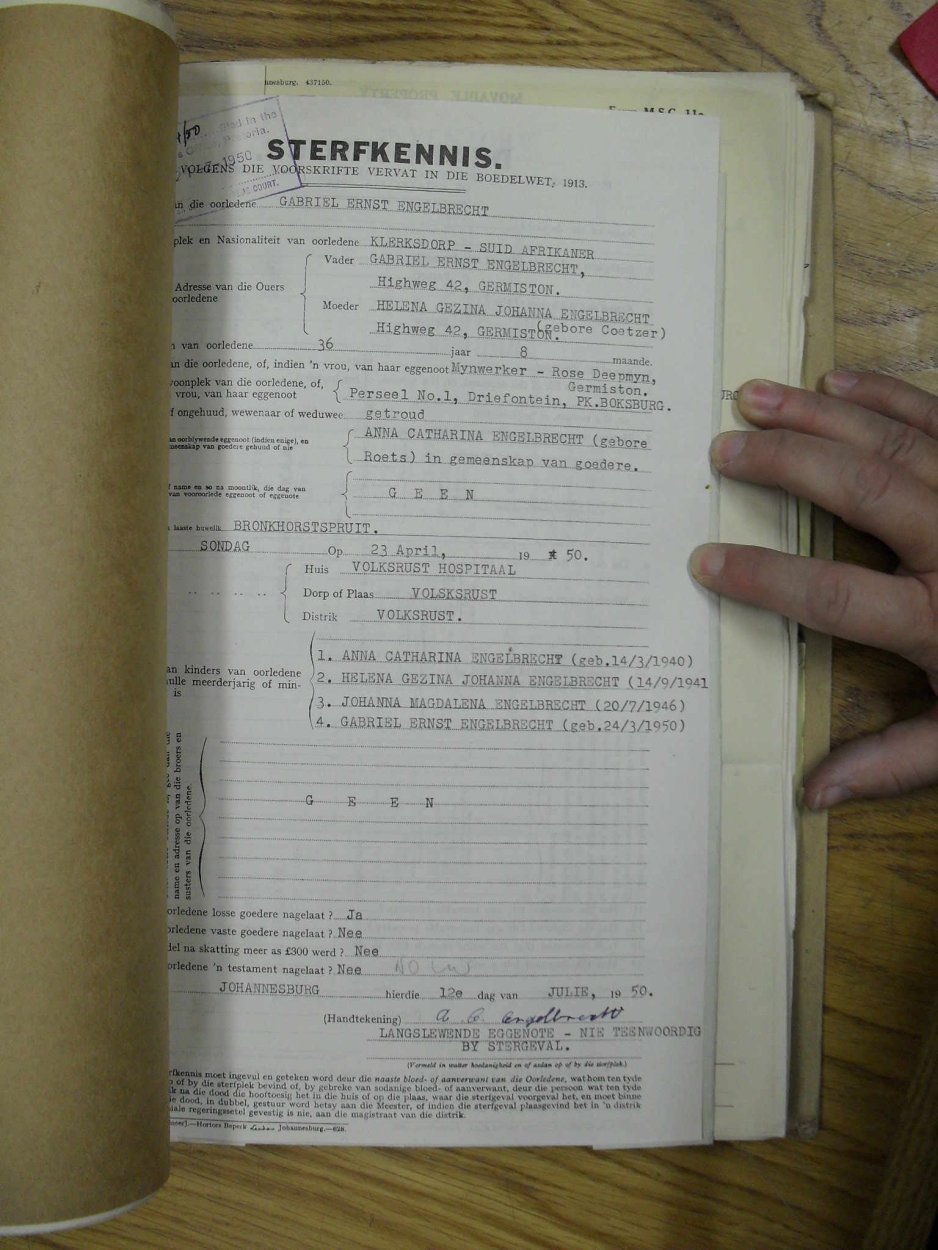 nnesburg. 437150.
MOVABLE PROPERTY
Form M.S.C. 11a
/50
filed in the
1950
COURT.
STERFKENNIS.
VOLGENS DIE VOORSKRIFTE VERVAT IN DIE BOEDELWET, 1913.
an die oorledene GABRIEL ERNST ENGELBRECHT
plek en Nasionaliteit van oorledene KLERKSDORP - SUID AFRIKANER
Vader GABRIEL ERNST ENGELBRECHT,
Highweg 42, GERMISTON.
Adresse van die Ouers
oorledene
Moeder HELENA GEZINA JOHANNA ENGELBRECHT
Highweg 42, GERMISTON. (gebore Coetzer)
n van oorledene 36 jaar 8 maande.
an die oorledene, of, indien 'n vrou, van haar eggenoot Mynwerker - Rose Deepmyn,
Germiston.
woonplek van die oorledene, of,
vrou, van haar eggenoot Perseel No.1, Driefontein, PK.BOKSBURG.
f ongehuud, wewenaar of weduwee getroud
an oorblywende eggenoot (indien enige), en
meenskap van goedere gehuud of nie
ANNA CATHARINA ENGELBRECHT (gebore
Roets) in gemeenskap van goedere.
f name en so na moontlik, die dag van
van vooroorlede eggenoot of eggenote
G E E N
laaste huwelik BRONKHORSTSPRUIT.
SONDAG Op 23 April, 19 50.
Huis VOLKSRUST HOSPITAAL
Dorp of Plaas VOLSKSRUST
Distrik VOLKSRUST.
an kinders van oorledene
hulle meerderjarig of min-
is
1. ANNA CATHARINA ENGELBRECHT (geb.14/3/1940)
2. HELENA GEZINA JOHANNA ENGELBRECHT (14/9/1941
3. JOHANNA MAGDALENA ENGELBRECHT (20/7/1946)
4. GABRIEL ERNST ENGELBRECHT (geb.24/3/1950)
name en adresse op van die broers en
susters van die oorledene.
G E E N
oorledene losse goedere nagelaat ? Ja
oorledene vaste goedere nagelaat ? Nee
del na skatting meer as £300 werd ? Nee
oorledene 'n testament nagelaat ? Nee
JOHANNESBURG hierdie 12e dag van JULIE, 19 50.
(Handtekening) A. C. Engelbrecht
LANGSLEWENDE EGGENOTE - NIE TEENWOORDIG
BY STERGEVAL.
(Vermeld in watter hoedanigheid en of aldan op of by die sterfplek.)
rfkennis moet ingevul en geteken word deur die naaste bloed- of aanverwant van die Oorledene, wat hom ten tyde
of by die sterfplek bevind of, by gebreke van sodanige bloed- of aanverwant, deur die persoon wat ten tyde
k na die dood die hooftoesig het in die huis of op die plaas, waar die sterfgeval voorgeval het, en moet binne
ie dood, in dubbel, gestuur word hetsy aan die Meester, of indien die sterfgeval plaasgevind het in 'n distrik
iale regeringssetel gevestig is nie, aan die magistraat van die distrik.
Hortors Beperk Johannesburg.—628.